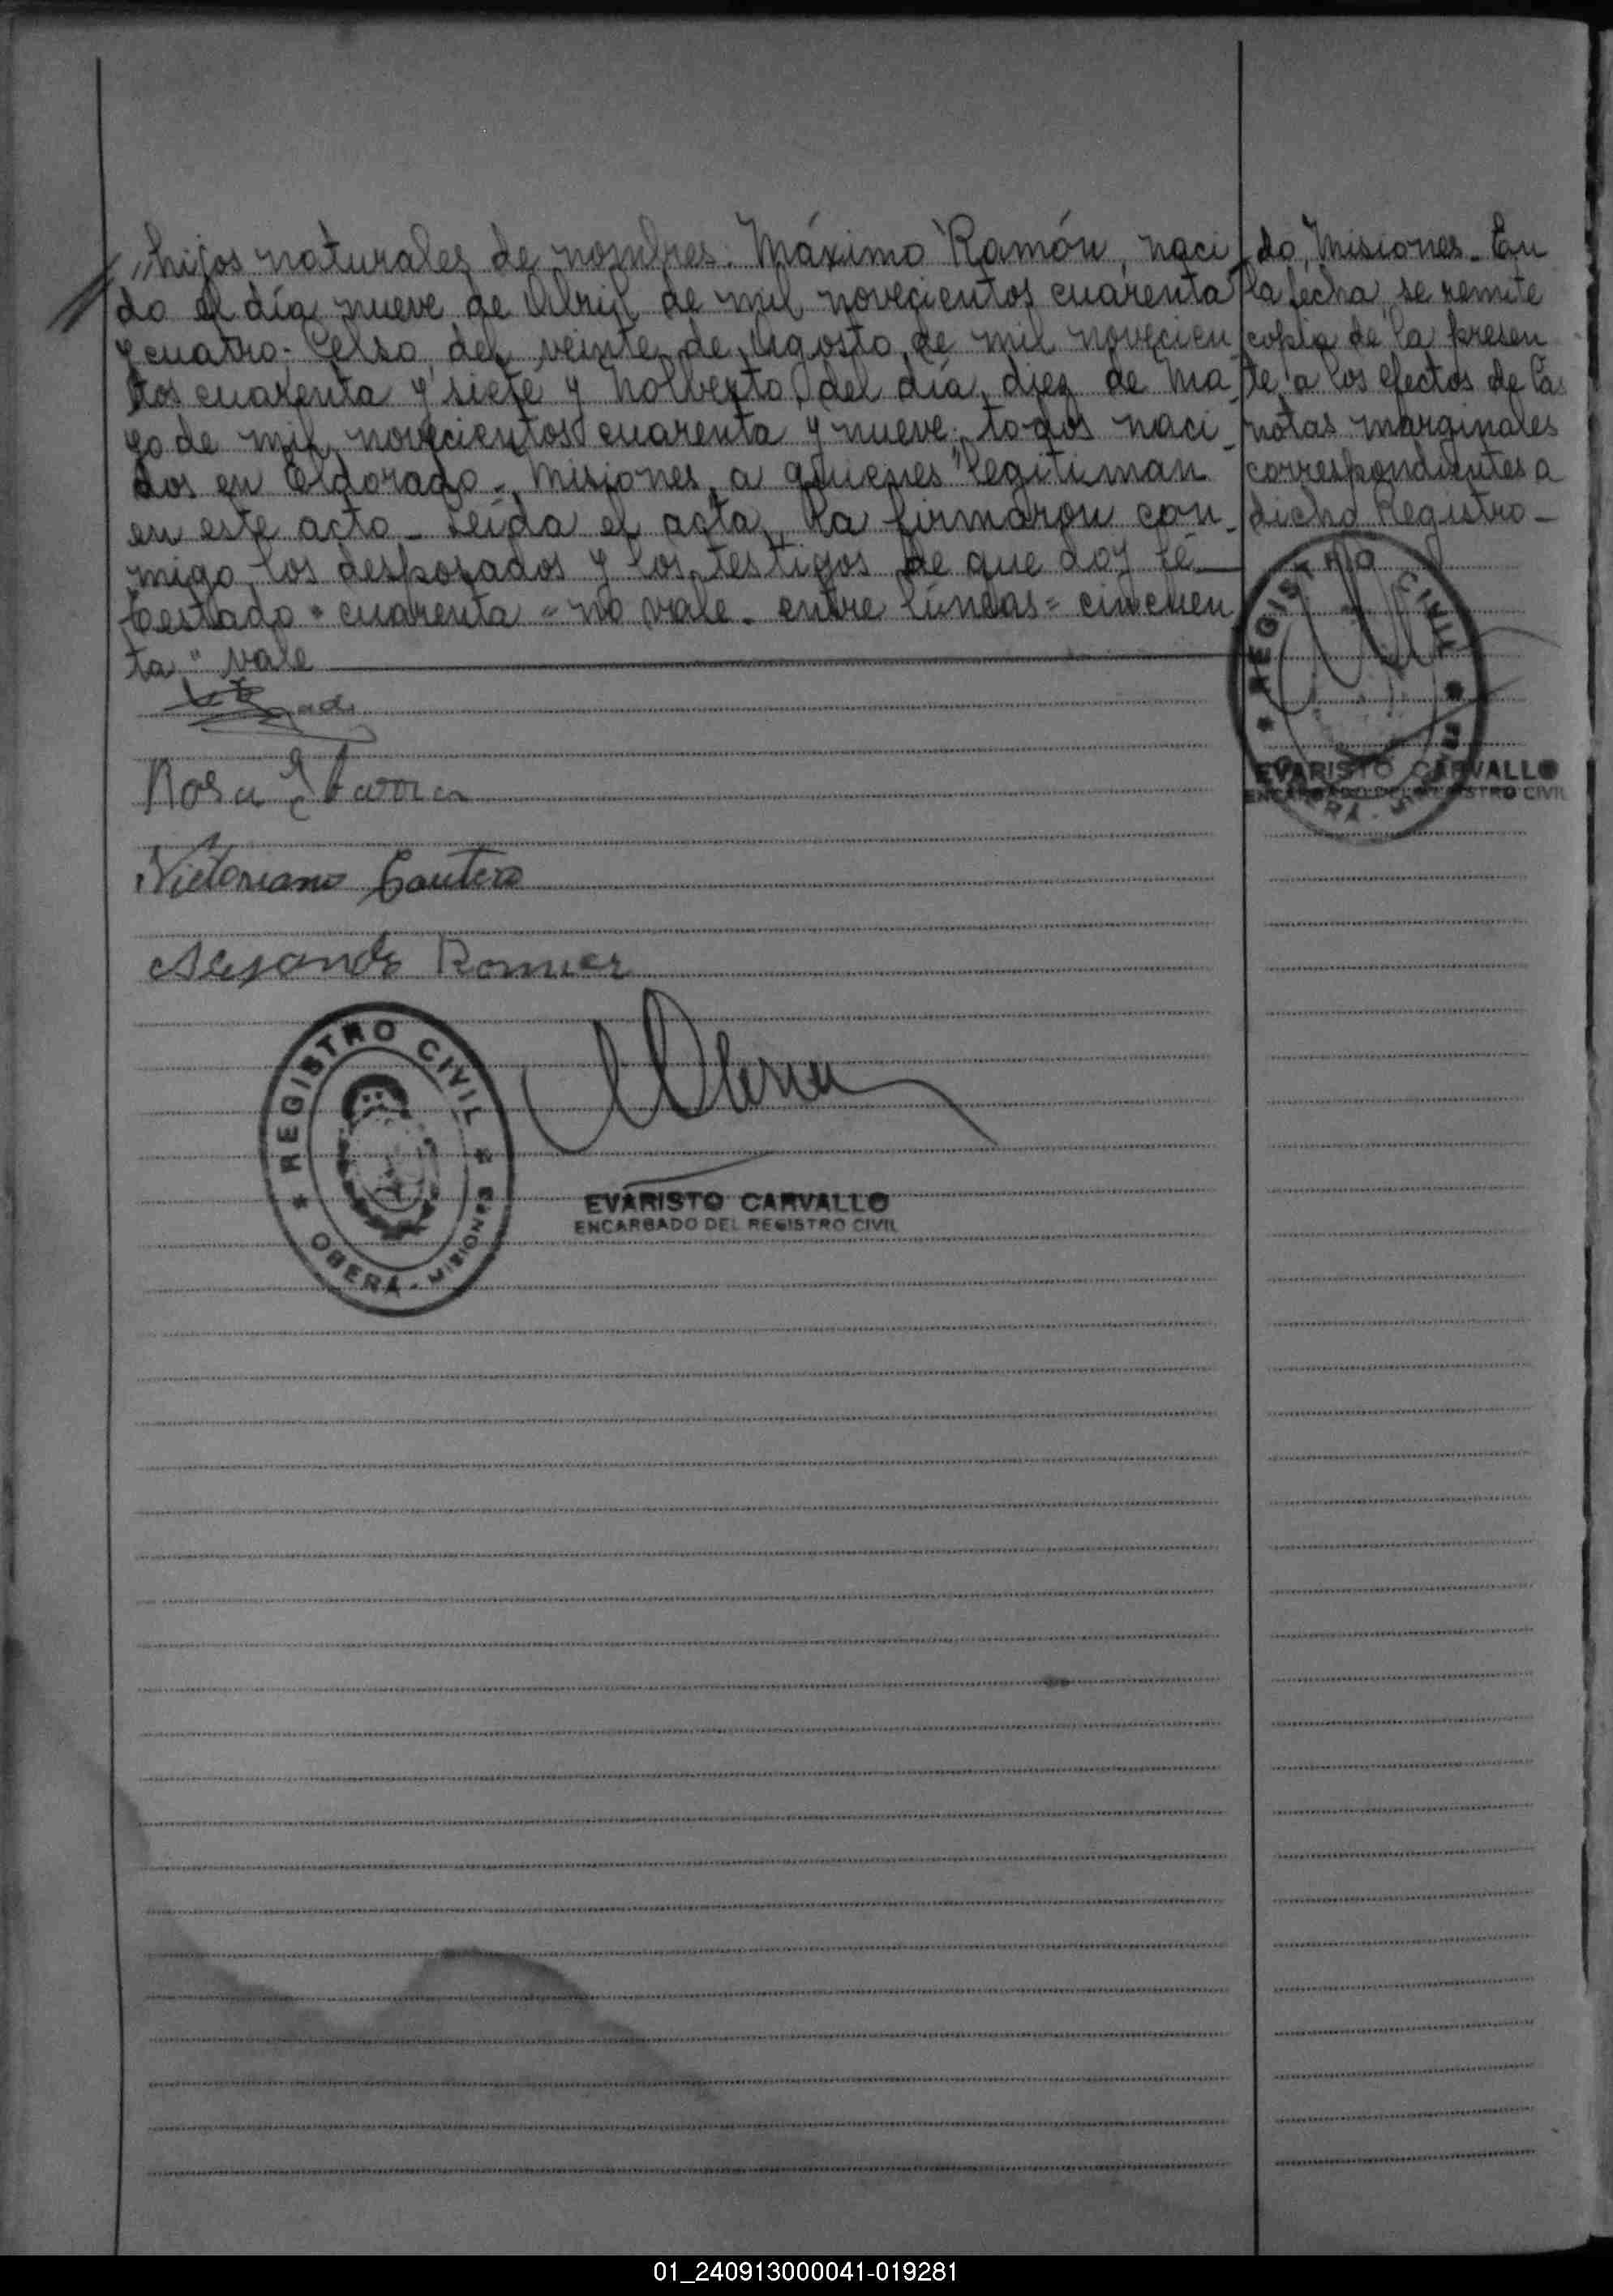 „hijos naturales de nombres: Máximo Ramón, naci
do el día nueve de Abril de mil novecientos cuarenta
y cuatro; Celso, del veinte de Agosto de mil novecien
tos cuarenta y siete y Nolberto, del día diez de Ma-
yo de mil novecientos cuarenta y nueve; todos naci-
dos en Eldorado - Misiones, a quienes legitiman
en este acto - Leída el acta, la firmaron con-
migo, los desposados y los testigos de que doy fé —
testado "cuarenta" no vale - entre líneas = cincuen
ta" vale
Rosa
Victoriano
Alejandro
REGISTRO CIVIL
OBERÁ - MISIONES
EVARISTO CARVALLO
ENCARGADO DEL REGISTRO CIVIL
do, Misiones. En
la fecha se remite
copia de la presen
te, a los efectos de las
notas marginales
correspondientes a
dicho Registro -
REGISTRO CIVIL
EVARISTO CARVALLO
ENCARGADO DEL REGISTRO CIVIL
01_240913000041-019281